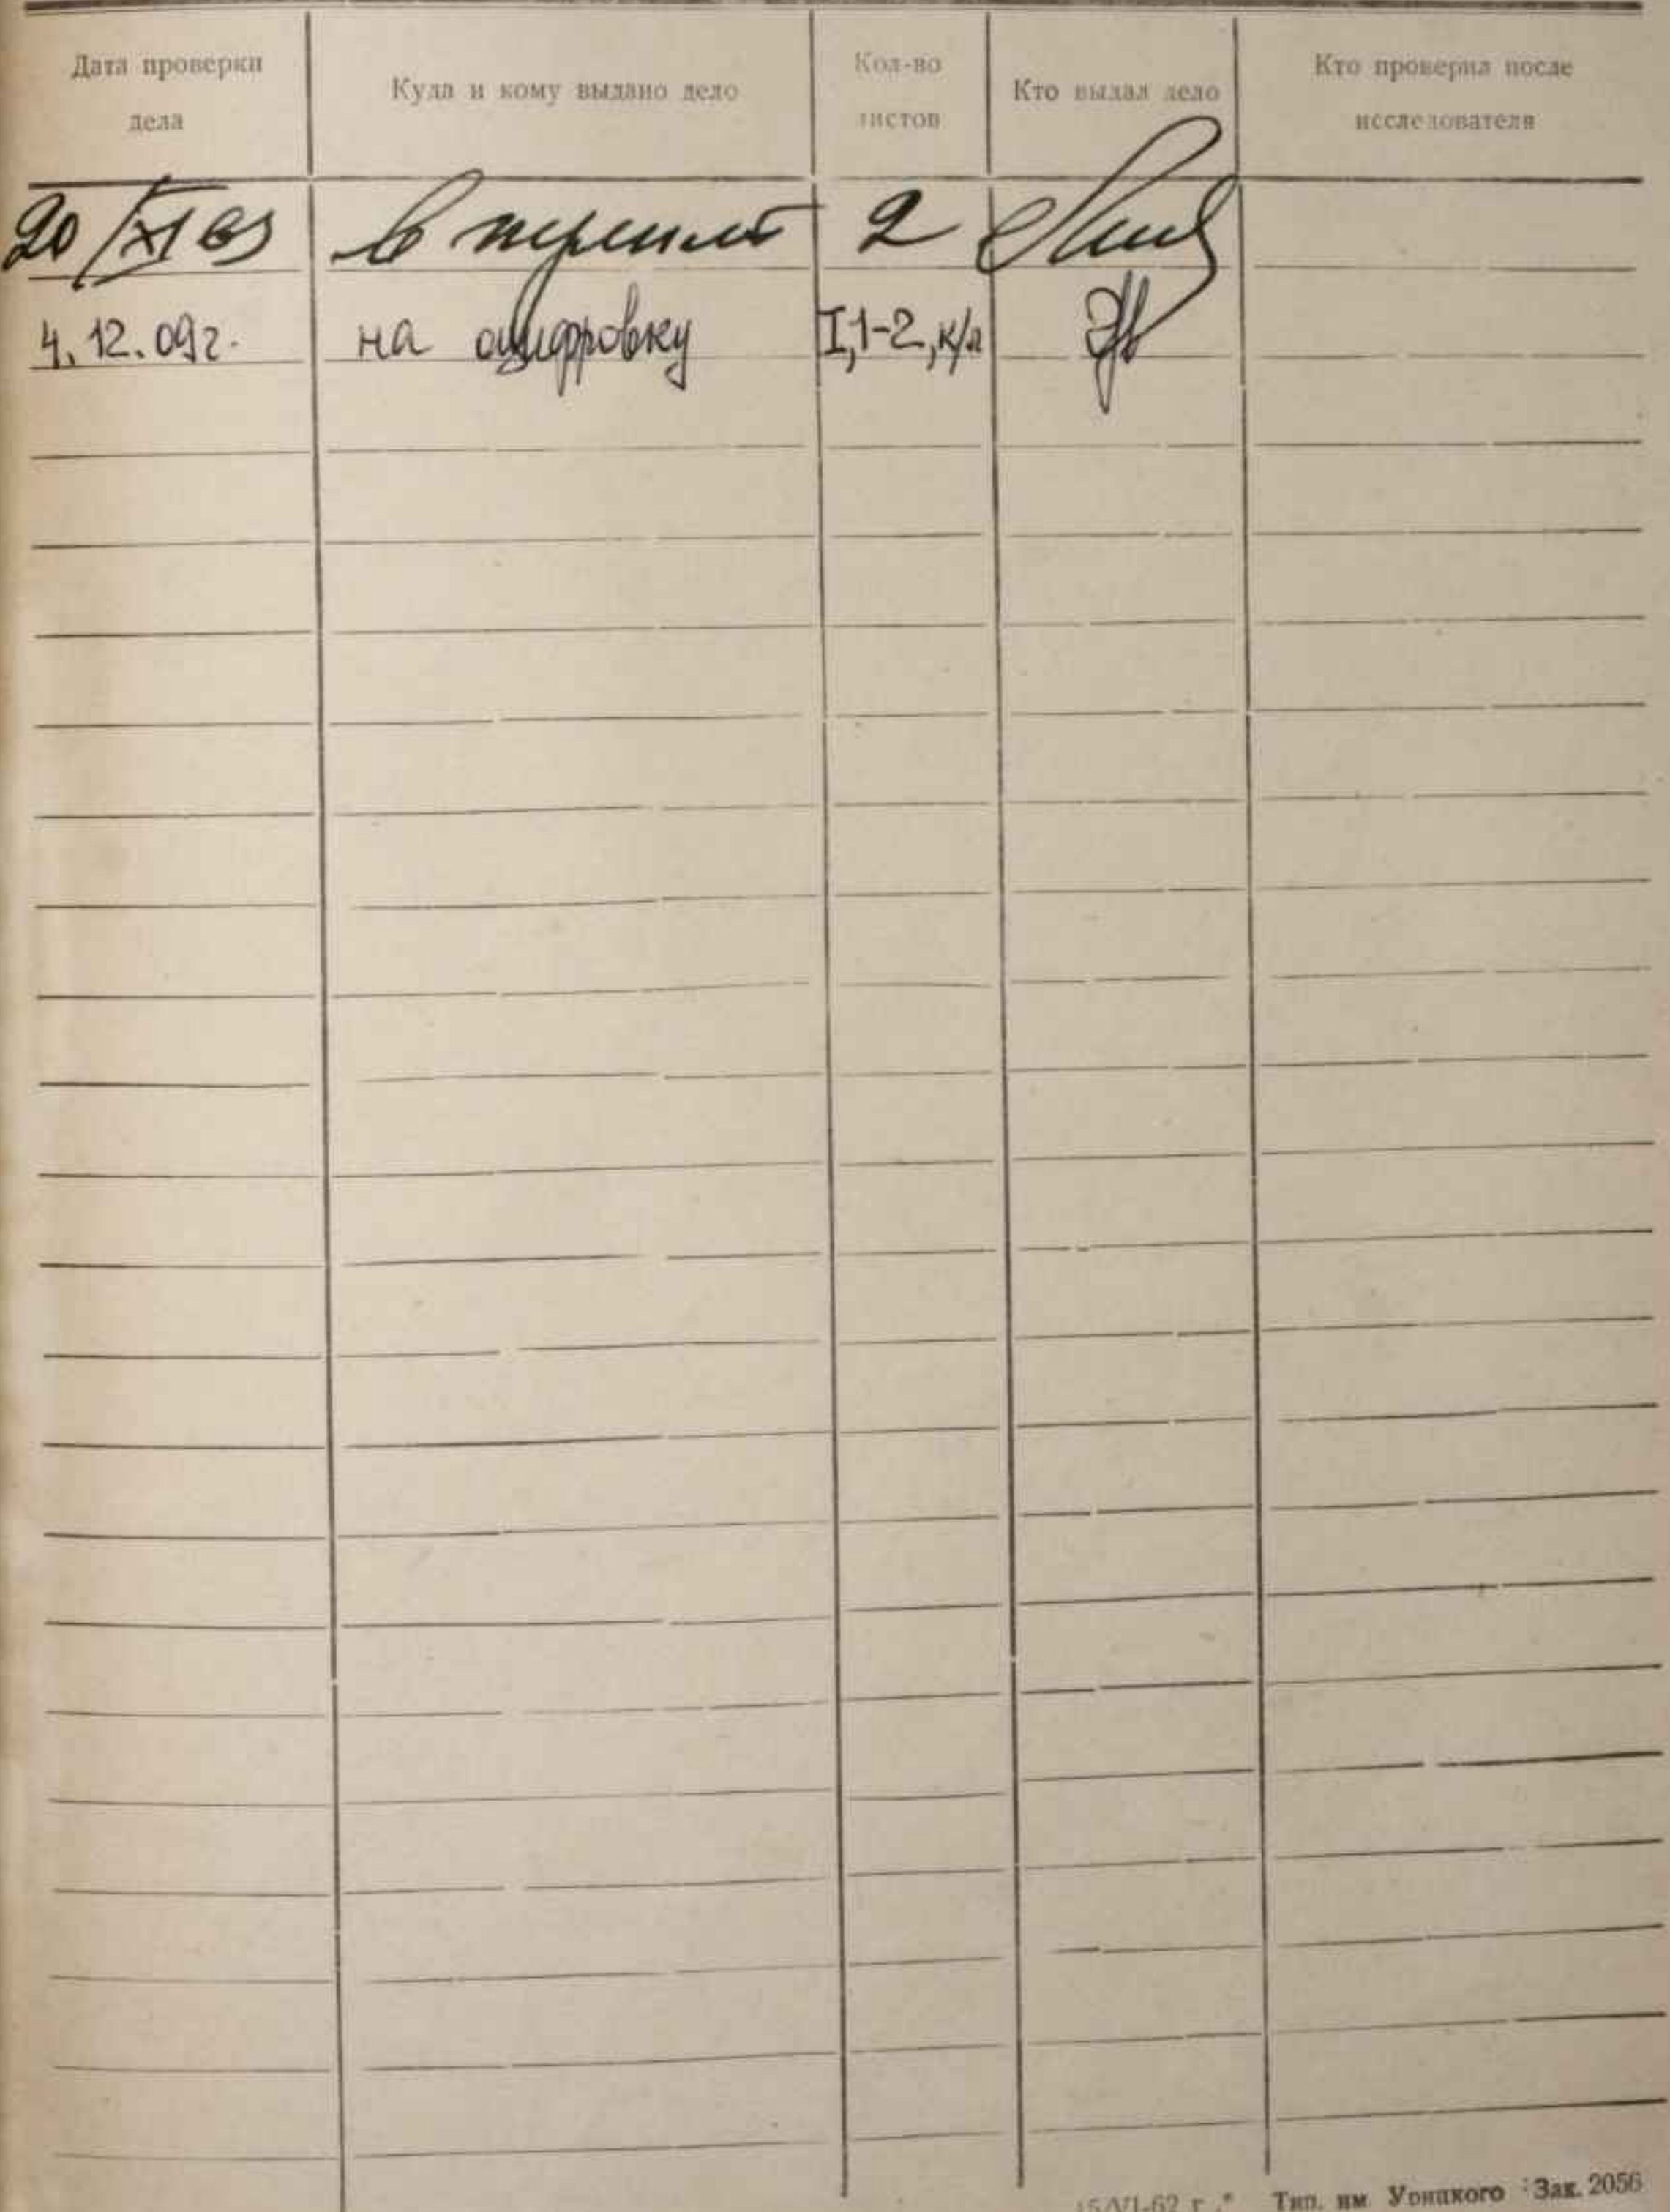 Дата проверки дела
Куда и кому выдано дело
Кол-во листов
Кто выдал дело
Кто проверил после исследователя
20/XI 63 в переплёт 2
4.12.09г. на оцифровку I,1-2,к/л
15/VI-62 г. Тип. им Урицкого Зак. 2056